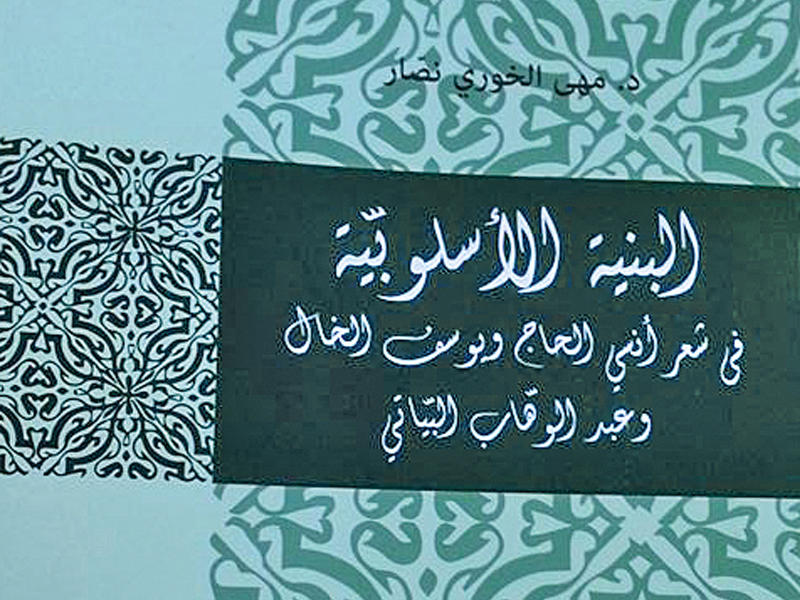 د. مهى الخوري نصّار
البنية الأسلوبيّة
في شعر أنسي الحاج ويوسف الخال
وعبد الوهّاب البيّاتي